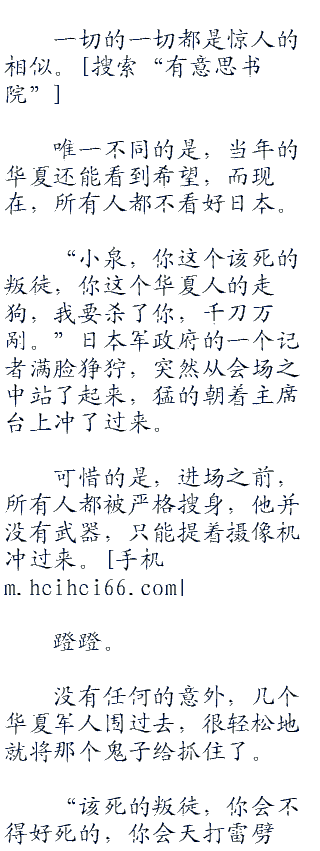 一切的一切都是惊人的
相似。[搜索“有意思书
院”]
唯一不同的是，当年的
华夏还能看到希望，而现
在，所有人都不看好日本。
“小泉，你这个该死的
叛徒，你这个华夏人的走
狗，我要杀了你，千刀万
剐。”日本军政府的一个记
者满脸狰狞，突然从会场之
中站了起来，猛的朝着主席
台上冲了过来。
可惜的是，进场之前，
所有人都被严格搜身，他并
没有武器，只能提着摄像机
冲过来。[手机
m.hcihci66.com|
蹬蹬。
没有任何的意外，几个
华夏军人围过去，很轻松地
就将那个鬼子给抓住了。
“该死的叛徒，你会不
得好死的，你会天打雷劈